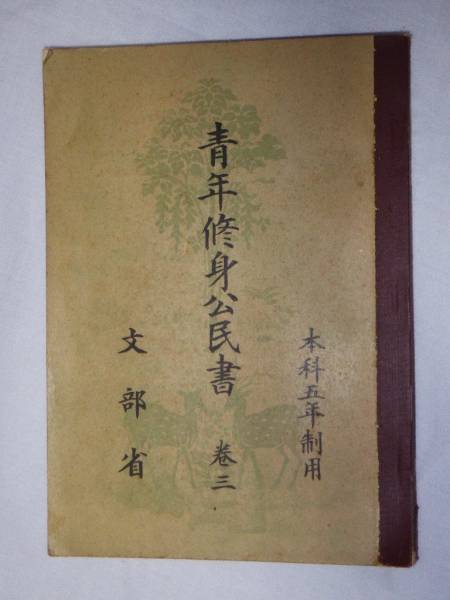 本科五年制用
青年修身公民書 卷三
文部省